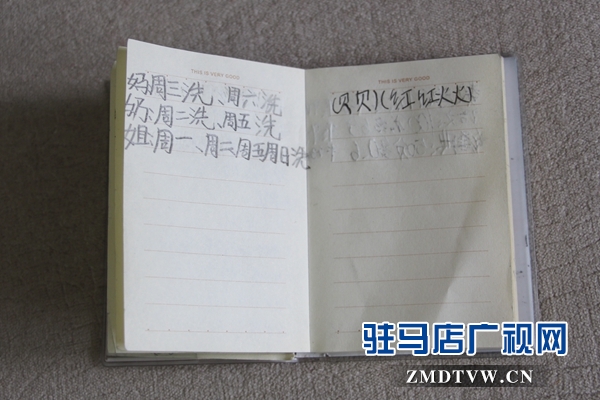 THIS IS VERY GOOD
妈:周三洗、周六洗
奶:周二洗、周五洗
姐:周一、周二、周五周日洗
THIS IS VERY GOOD
(贝贝)(红红火火)
驻马店广视网
ZMDTVW.CN